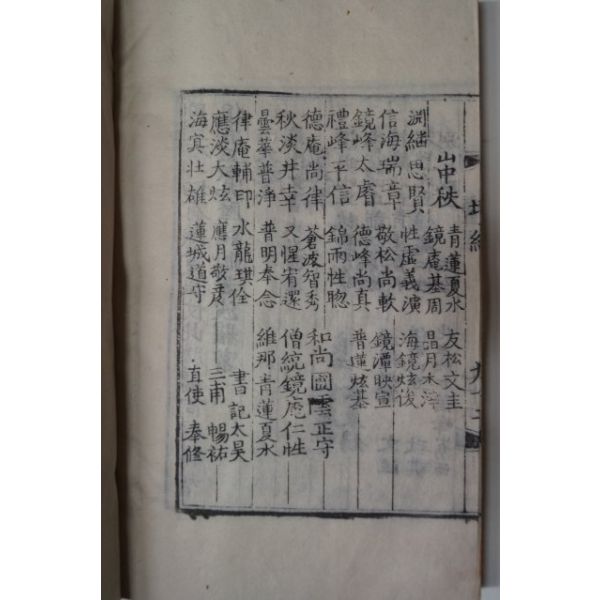 山中秩
青蓮夏水 友松文圭
淵繕思賢 鏡庵基周 晶月永
信海瑞章 性虛義演 海鏡炫俊
鏡峰太睿 敬松尚軟 鏡潭映宣
禮峰平信 德峰尚真 普蓮炫基
德庵尚律 錦雨性聰
秋淡井幸 蒼波智秀 和尚圓雲正守
曇華普淨 又惺宥還 僧統鏡應仁性
律庵輔印 普明奉念 維那青蓮夏水
應淡大炫 水龍琪佺 書記太昊
海冥壯雄 應月敬彦 三甫暢祐
蓮城道守 直使奉修